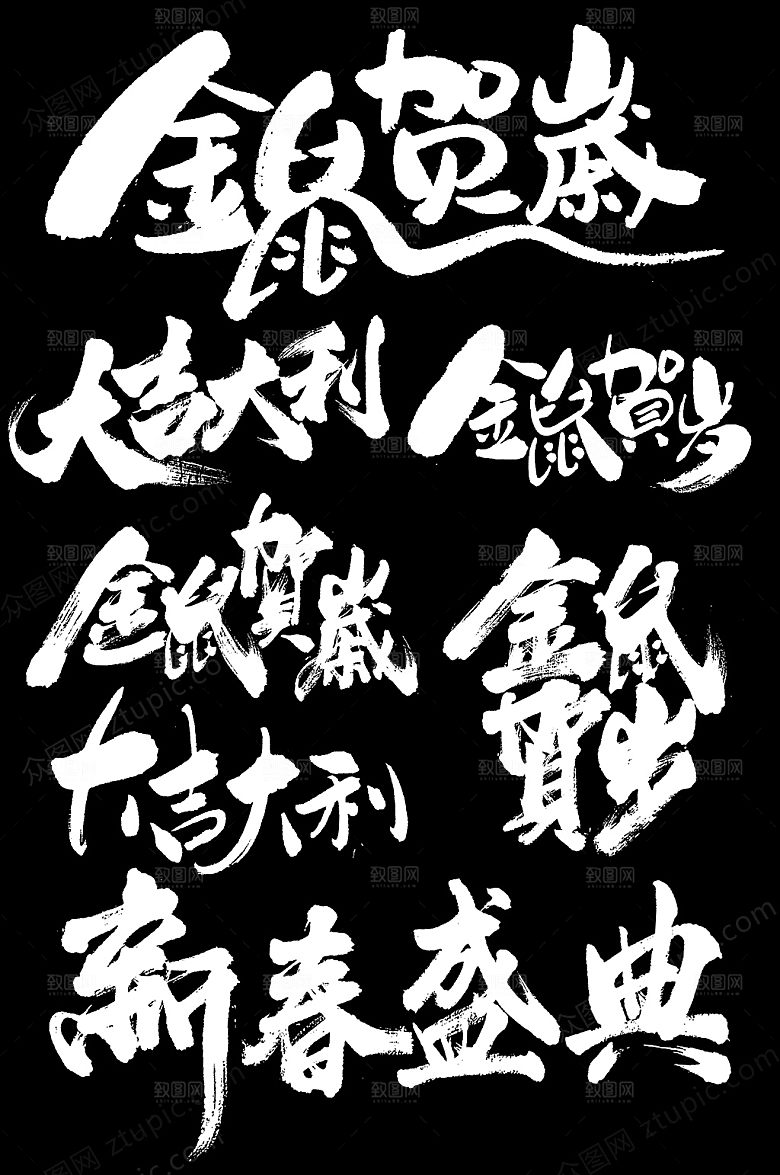 金鼠贺歲
大吉大利
金鼠賀岁
金鼠賀歲
金鼠
賀岁
大吉大利
新春盛典
致图网
众图网 ztupic.com